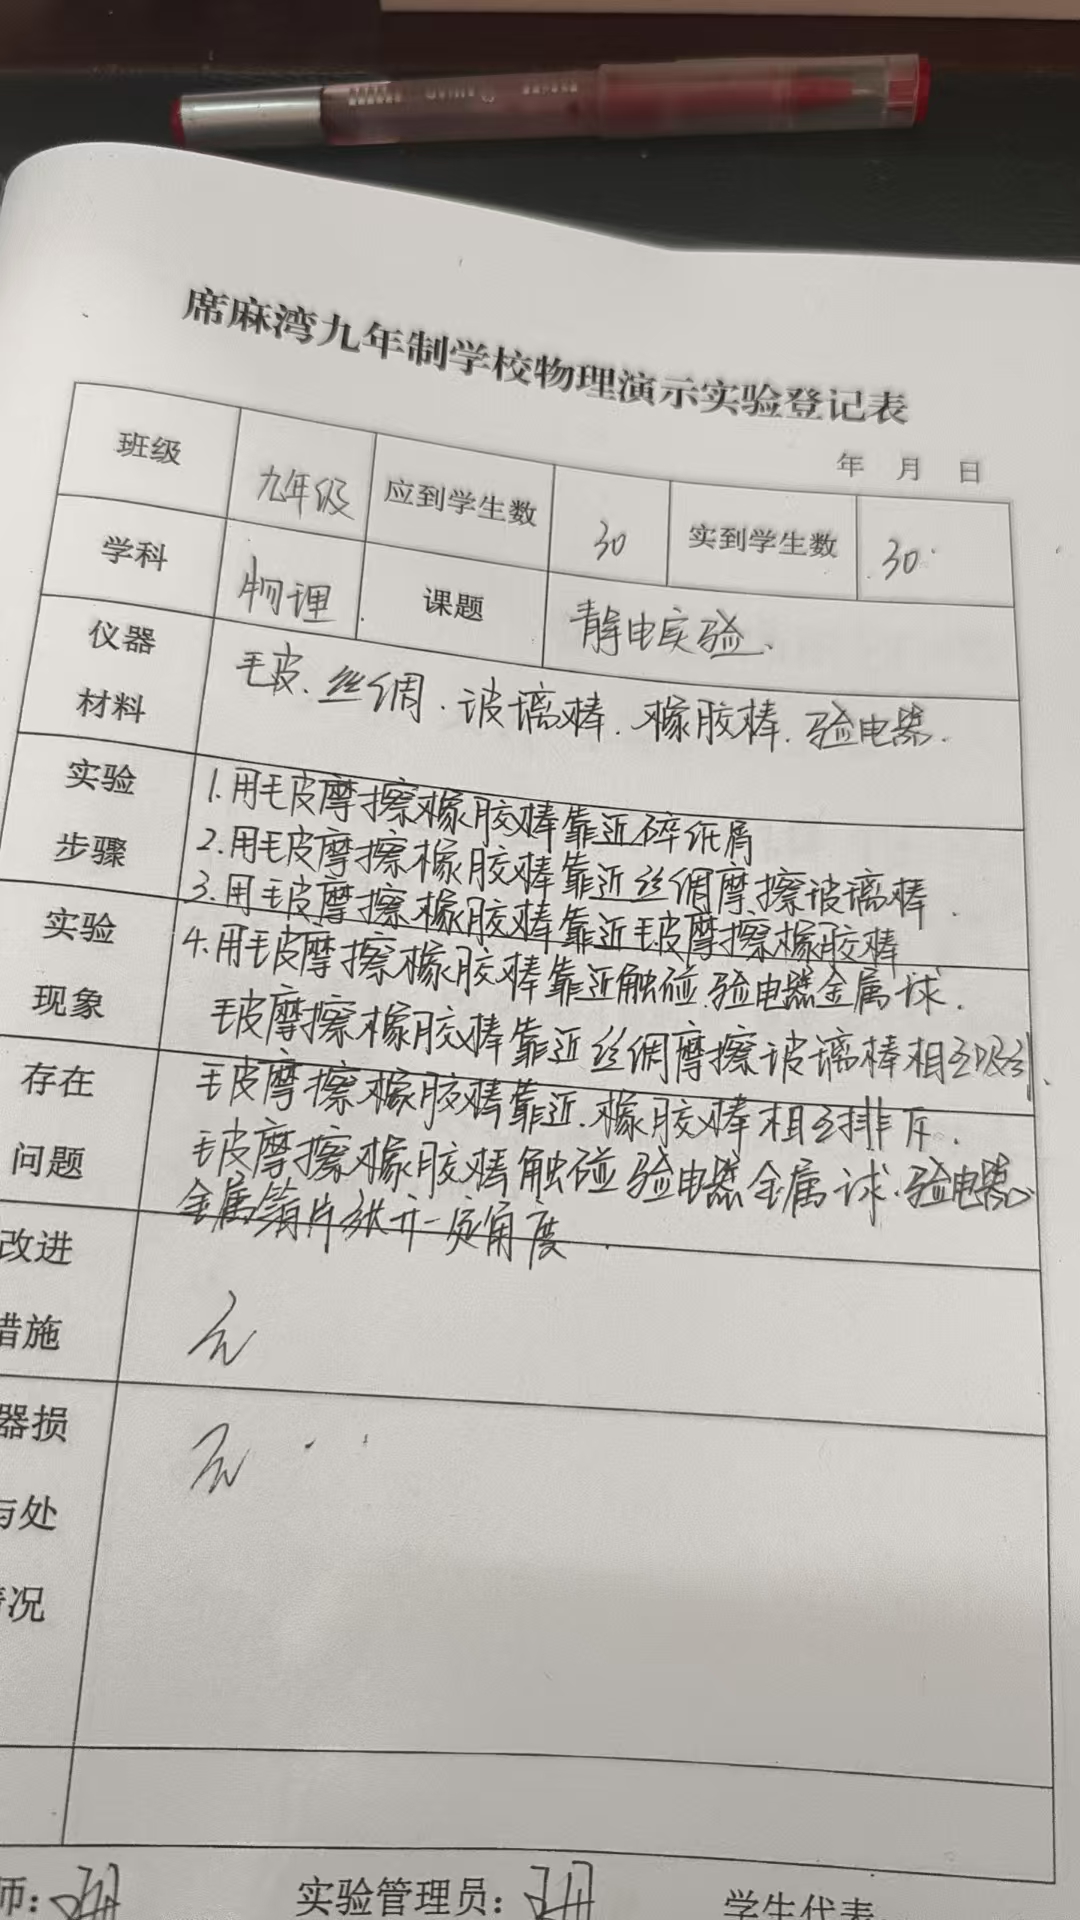 席麻湾九年制学校物理演示实验登记表
年 月 日
班级 九年级 应到学生数 30 实到学生数 30
学科 物理 课题 静电实验.
仪器
材料
毛皮、丝绸.玻璃棒.橡胶棒.验电器.
实验
步骤
1.用毛皮摩擦橡胶棒靠近碎纸屑
2.用毛皮摩擦橡胶棒靠近丝绸摩擦玻璃棒.
3.用毛皮摩擦橡胶棒靠近毛皮摩擦橡胶棒
实验
现象
4.用毛皮摩擦橡胶棒靠近触碰验电器金属球.
毛皮摩擦橡胶棒靠近丝绸摩擦玻璃棒相互吸引.
存在
问题
毛皮摩擦橡胶棒靠近.橡胶棒相互排斥.
毛皮摩擦橡胶棒触碰验电器金属球.验电器
金属箔片张开一定角度.
改进
措施
无
器损
与处
情况
无
师: 实验管理员: 学生代表